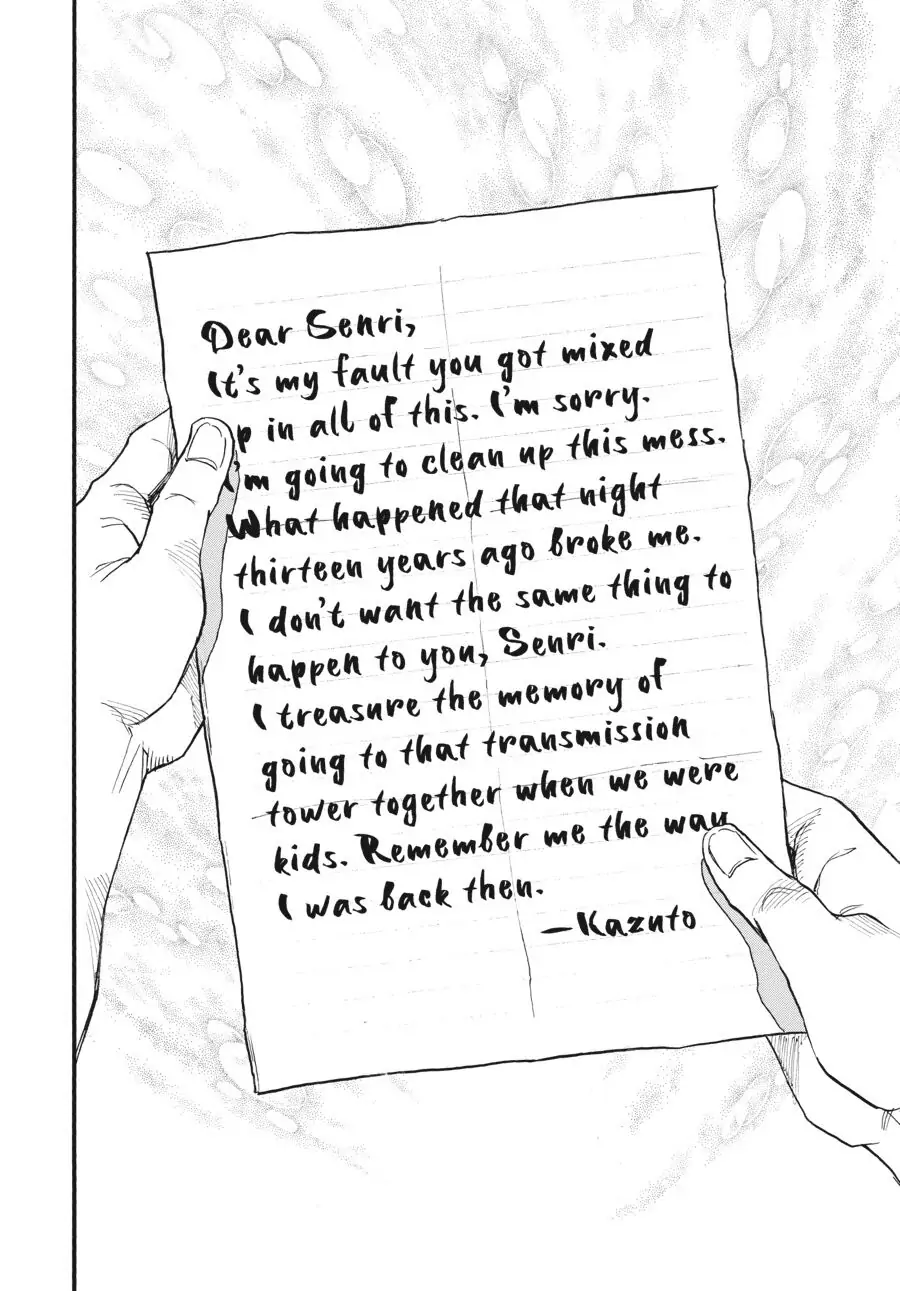 Dear Senri,
It's my fault you got mixed
up in all of this. I'm sorry.
I'm going to clean up this mess.
What happened that night
thirteen years ago broke me.
I don't want the same thing to
happen to you, Senri.
I treasure the memory of
going to that transmission
tower together when we were
kids. Remember me the way
I was back then.
—Kazuto